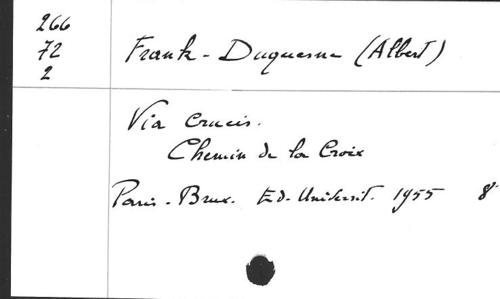 266
72
2
Frank-Duquesne (Albert)
Via Crucis.
Chemin de la Croix
Paris-Brux. Ed. Universit. 1955 8°